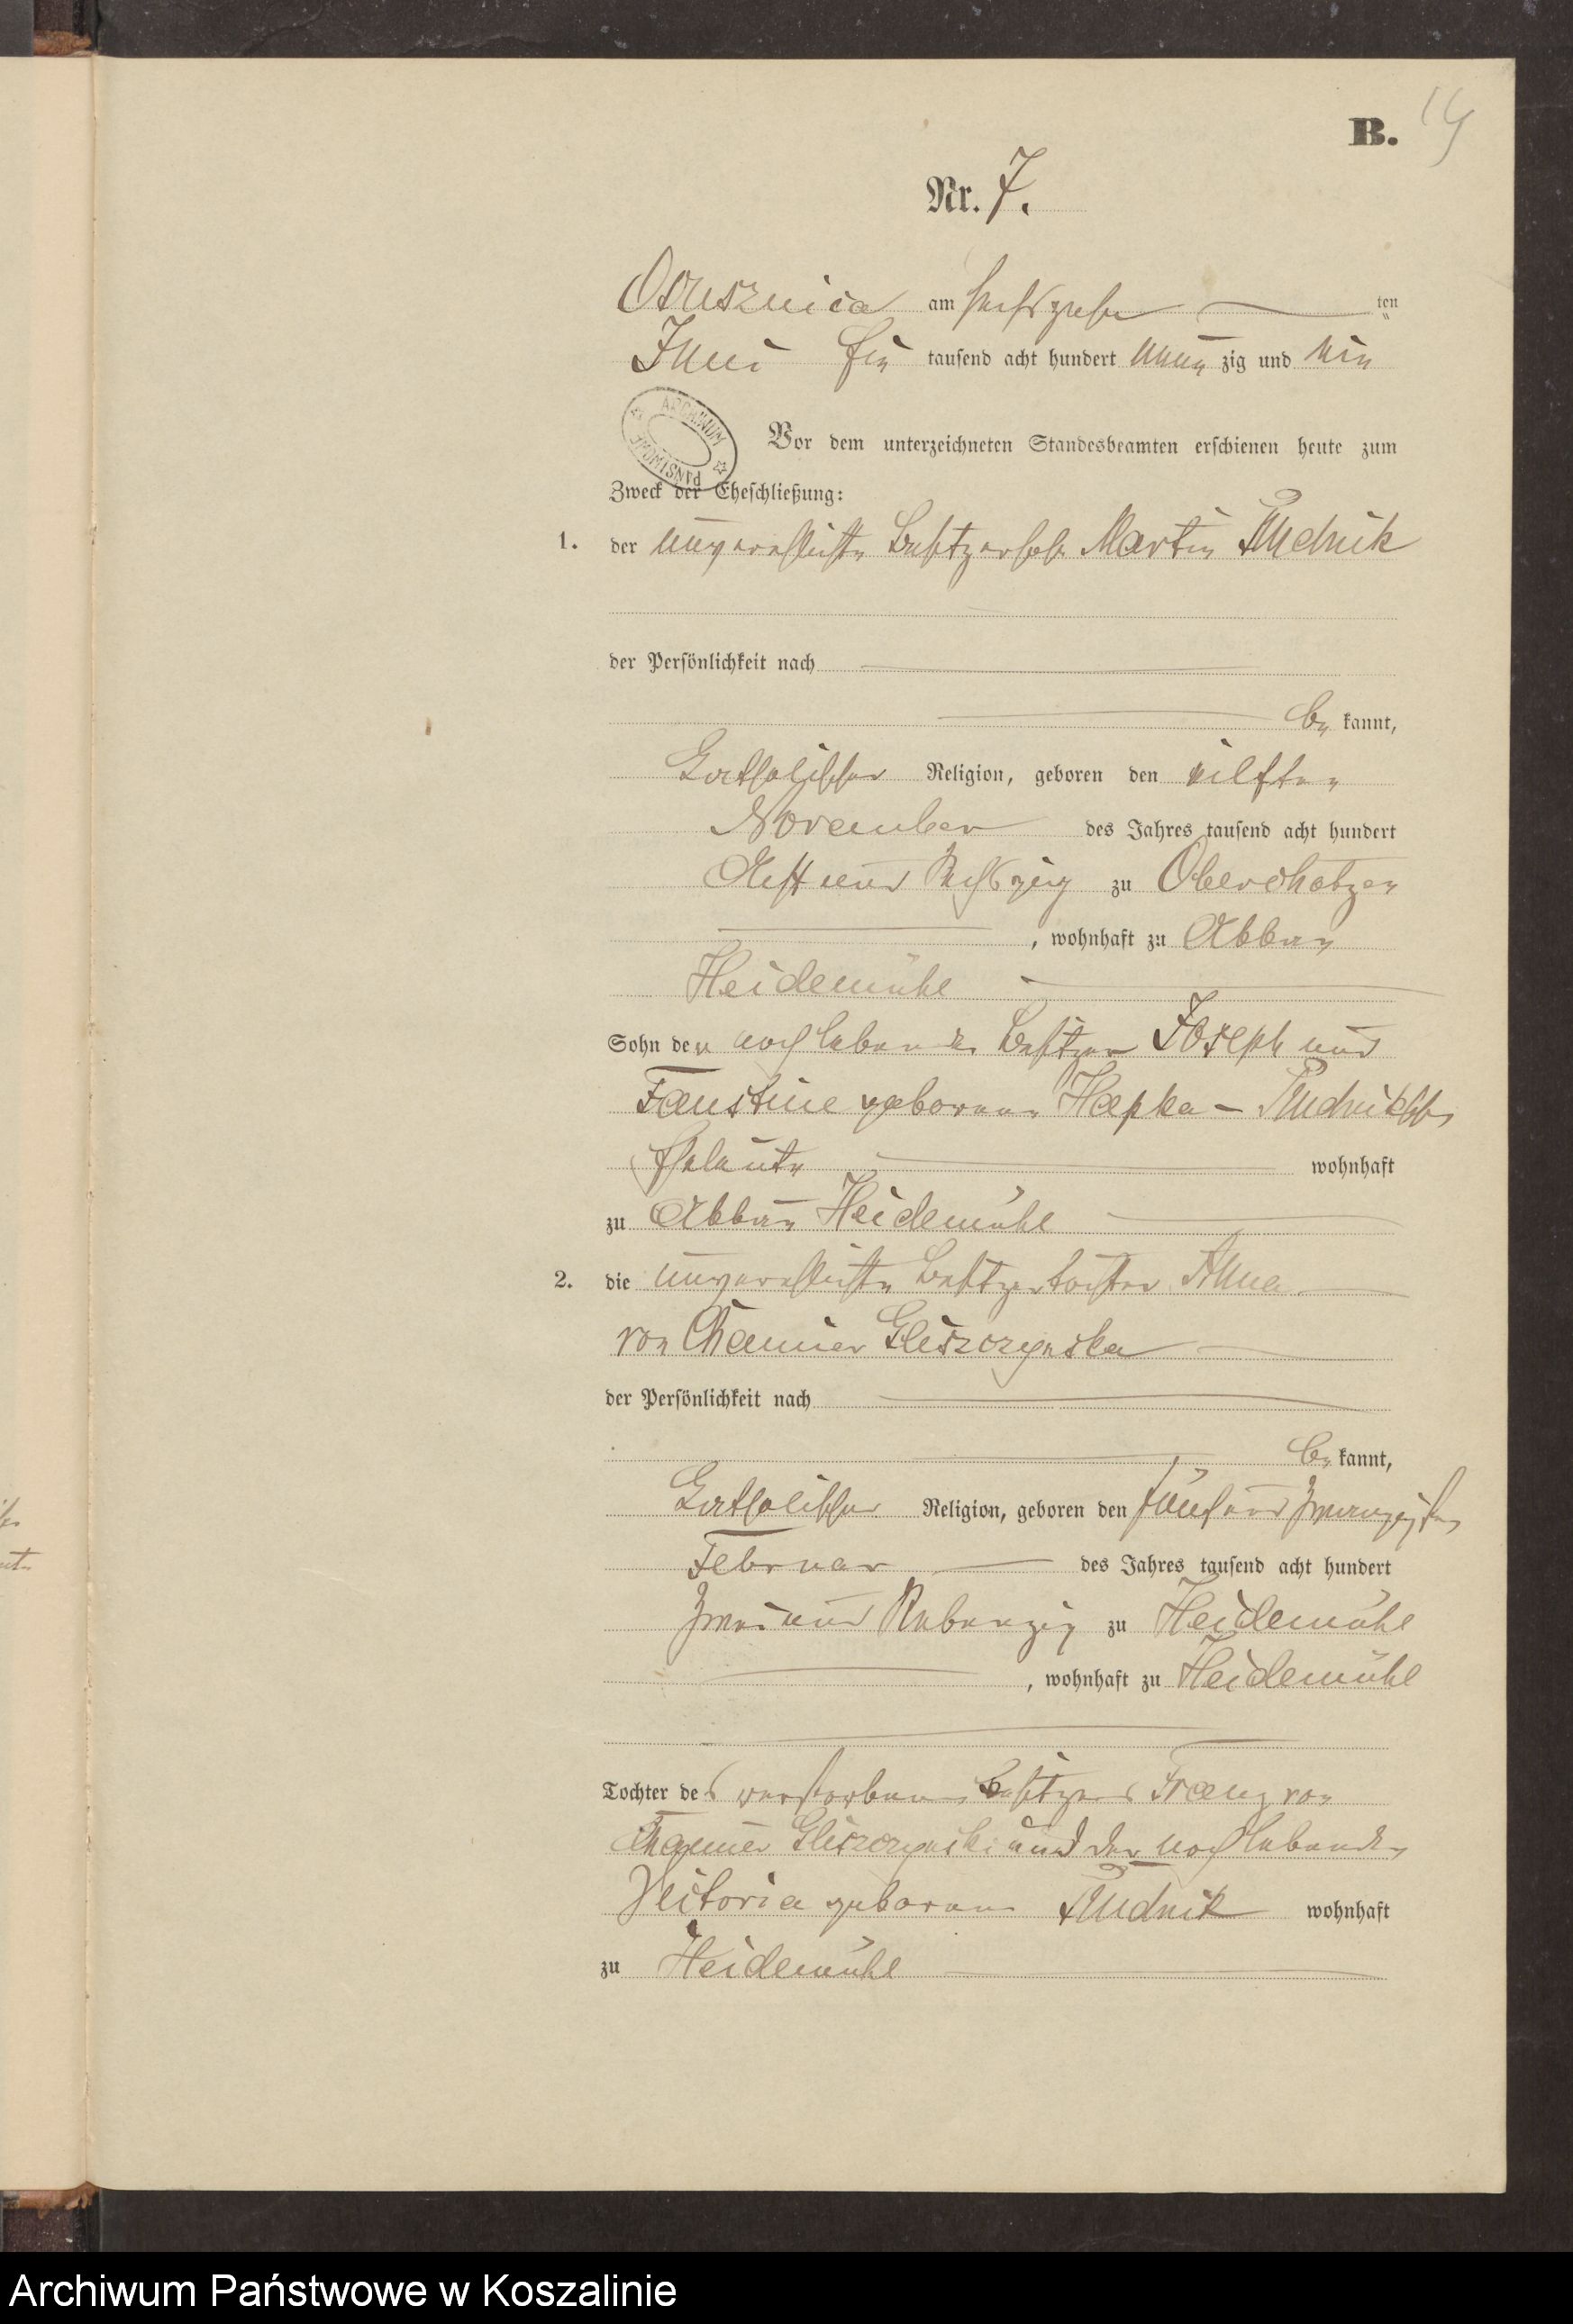 B. 14
Nr. 7.
Ossusznica am sechszehn ten
Juni Ein tausend acht hundert neun zig und ein
ARCHIWUM PAŃSTWOWE
Vor dem unterzeichneten Standesbeamten erschienen heute zum
Zweck der Eheschließung:
1. der unverehlichte Besitzersohn Martin Rudnik
der Persönlichkeit nach
be kannt,
Katholischer Religion, geboren den eilften
November des Jahres tausend acht hundert
Acht und sechszig zu Oberchotzen
, wohnhaft zu Abbau
Heidemühl
Sohn der noch lebenden Besitzer Joseph und
Faustine geborene Hapka - Rudnikschen
Eheleute wohnhaft
zu Abbau Heidemühl
2. die unverehlichte Besitzertochter Anna
von Chamier Gliszczynska
der Persönlichkeit nach
be kannt,
Katholischer Religion, geboren den fünf und zwanzigsten
Februar des Jahres tausend acht hundert
zwei und siebenzig zu Heidemühl
, wohnhaft zu Heidemühl
Tochter des verstorbenen Besitzers Franz von
Chamier Gliszczynski und der noch lebenden
Victoria geborene Rudnik wohnhaft
zu Heidemühl
Archiwum Państwowe w Koszalinie